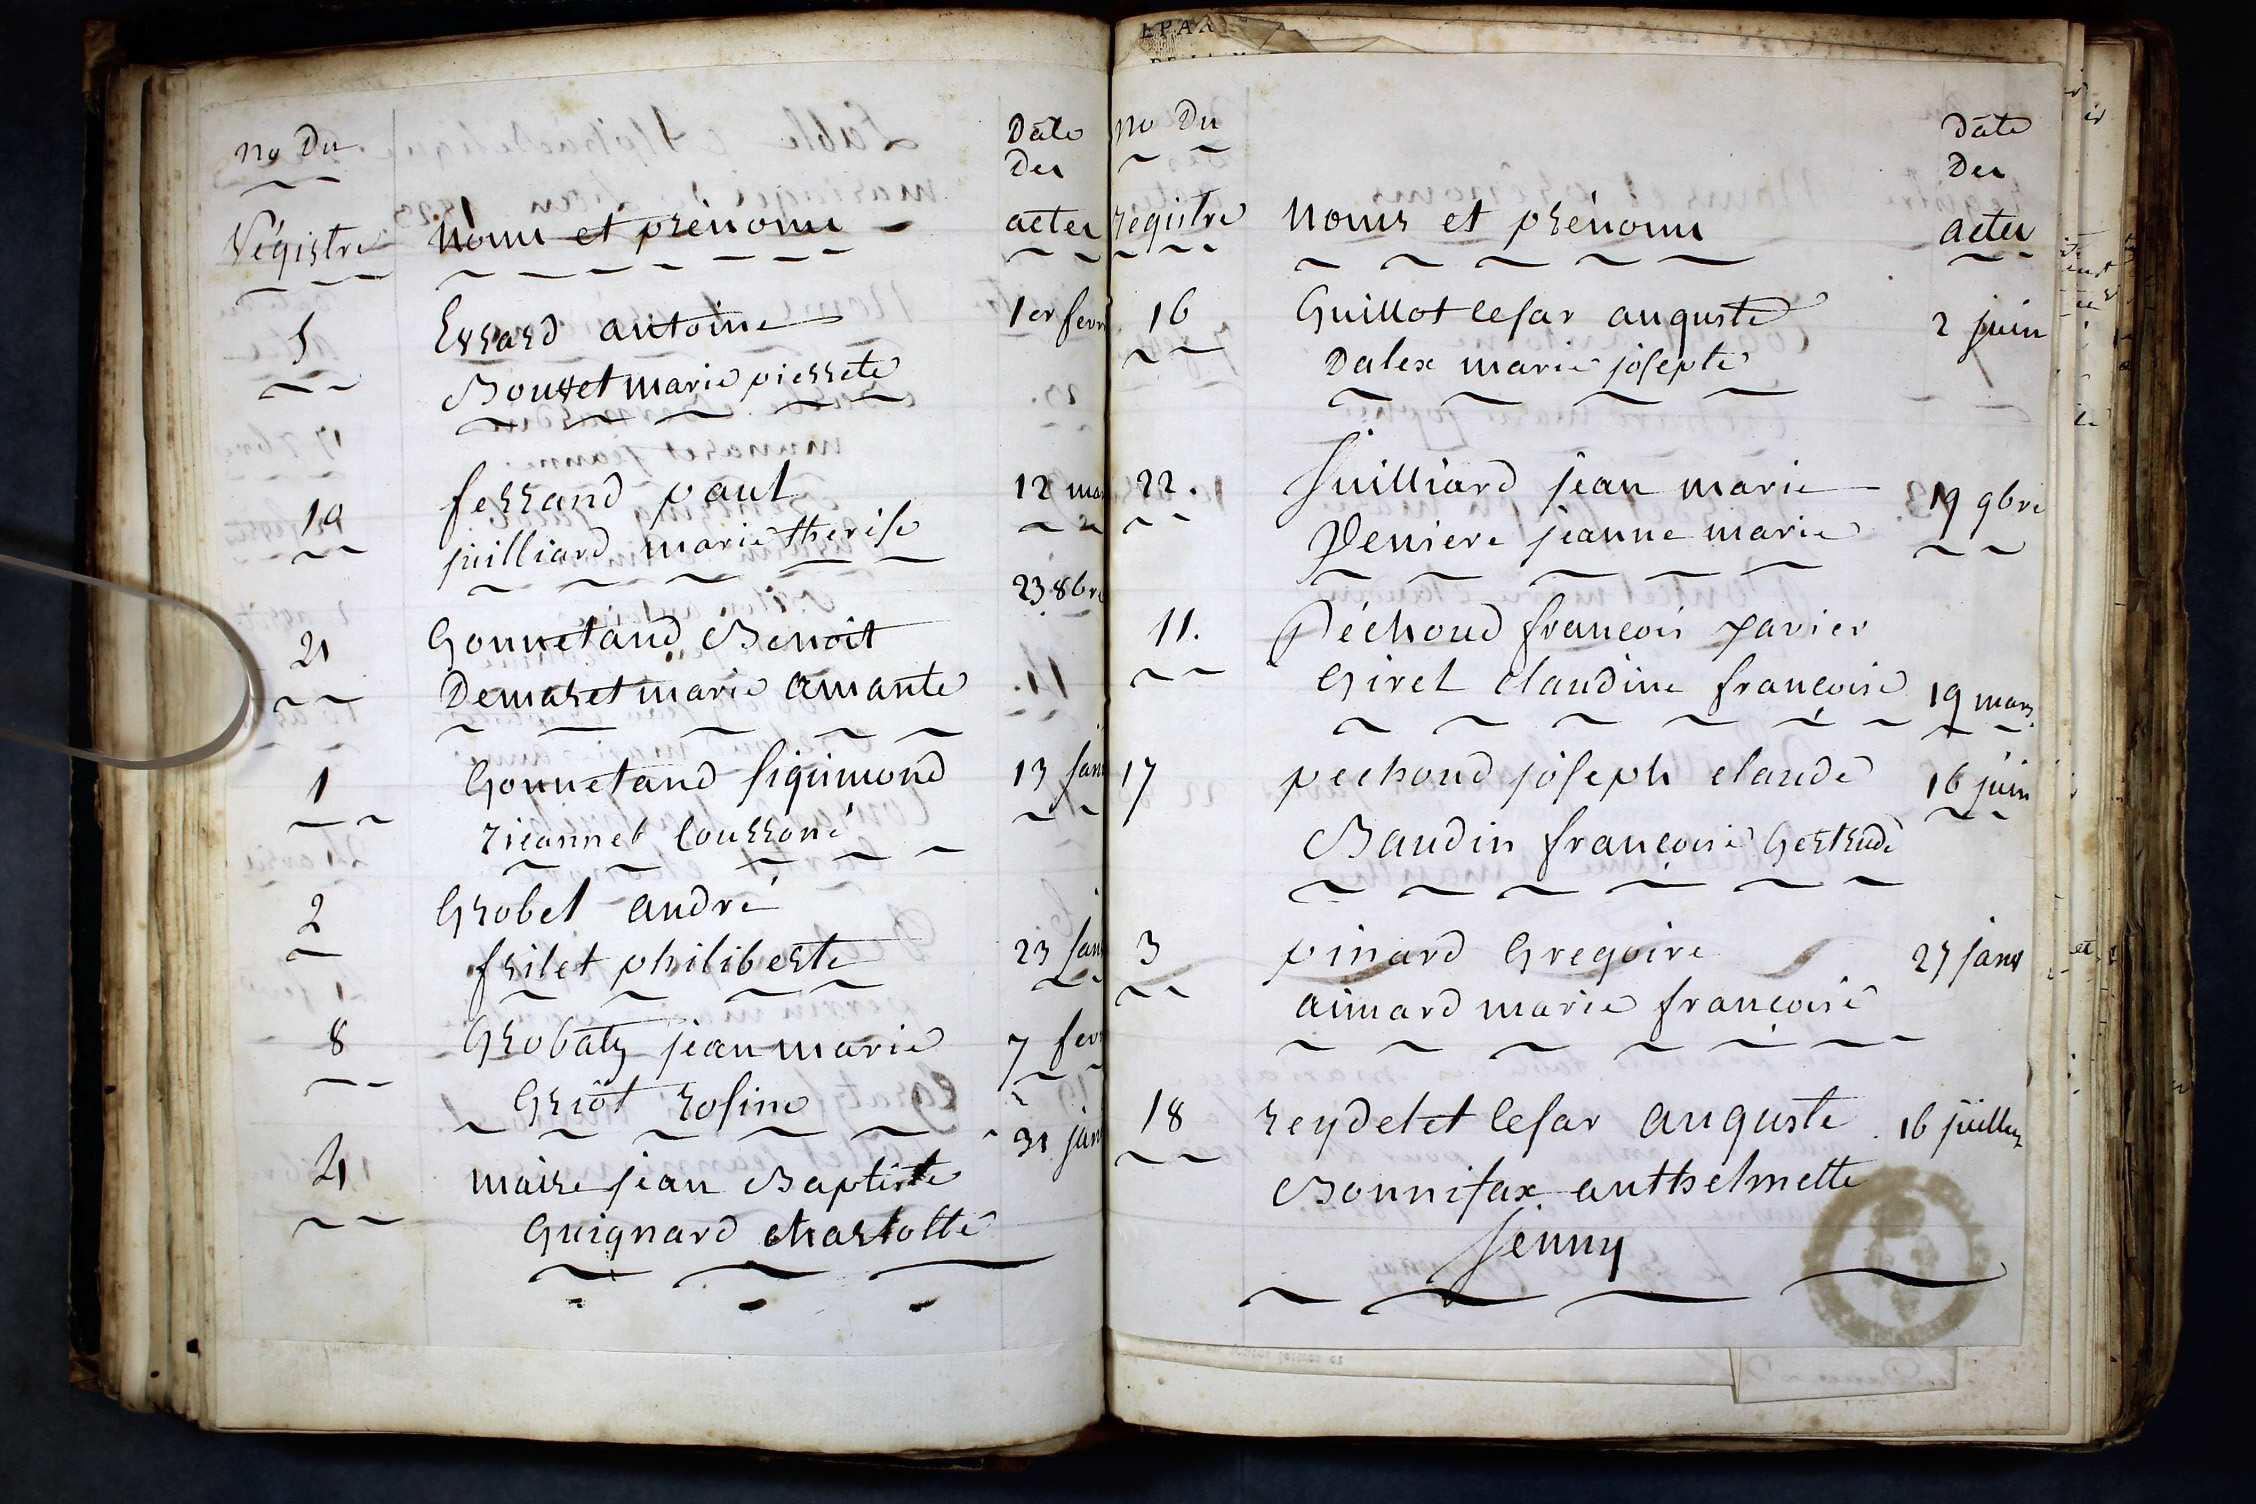 no Du
Régistre
Noms et prénoms
Date
Des
actes
5
Errard antoine
1er fevr
Bouvet marie pierrete
10
ferrand paul
12 mar
juilliard marie therise
21
Gonnetand Benoit
23 8bre
Demaret marie amante
1
Gonnetand sigimond
13 jan
2
Grobet andré
frilet philiberte
23 jan
8
Grobaty jean marie
7 fev
Griôt rosine
4
maire jean Baptiste
31 jan
Guignard charlotte
no Du
registre
Noms et prénoms
Date
Des
actes
16
Guillot cesar auguste
2 juin
Dalex marie josepte
22.
Juilliard jean marie
19 9bre
Peniere jeanne marie
11.
Péchoud françois xavier
Giret claudine françoise
19 mars
17
pechoud joseph claude
16 juin
Baudin françoise Gertrude
3
pinard Gregoire
27 janv
aimard marie françoise
18
reydelet cesar auguste
16 juillet
Bonnifax anthelmette
Jenny